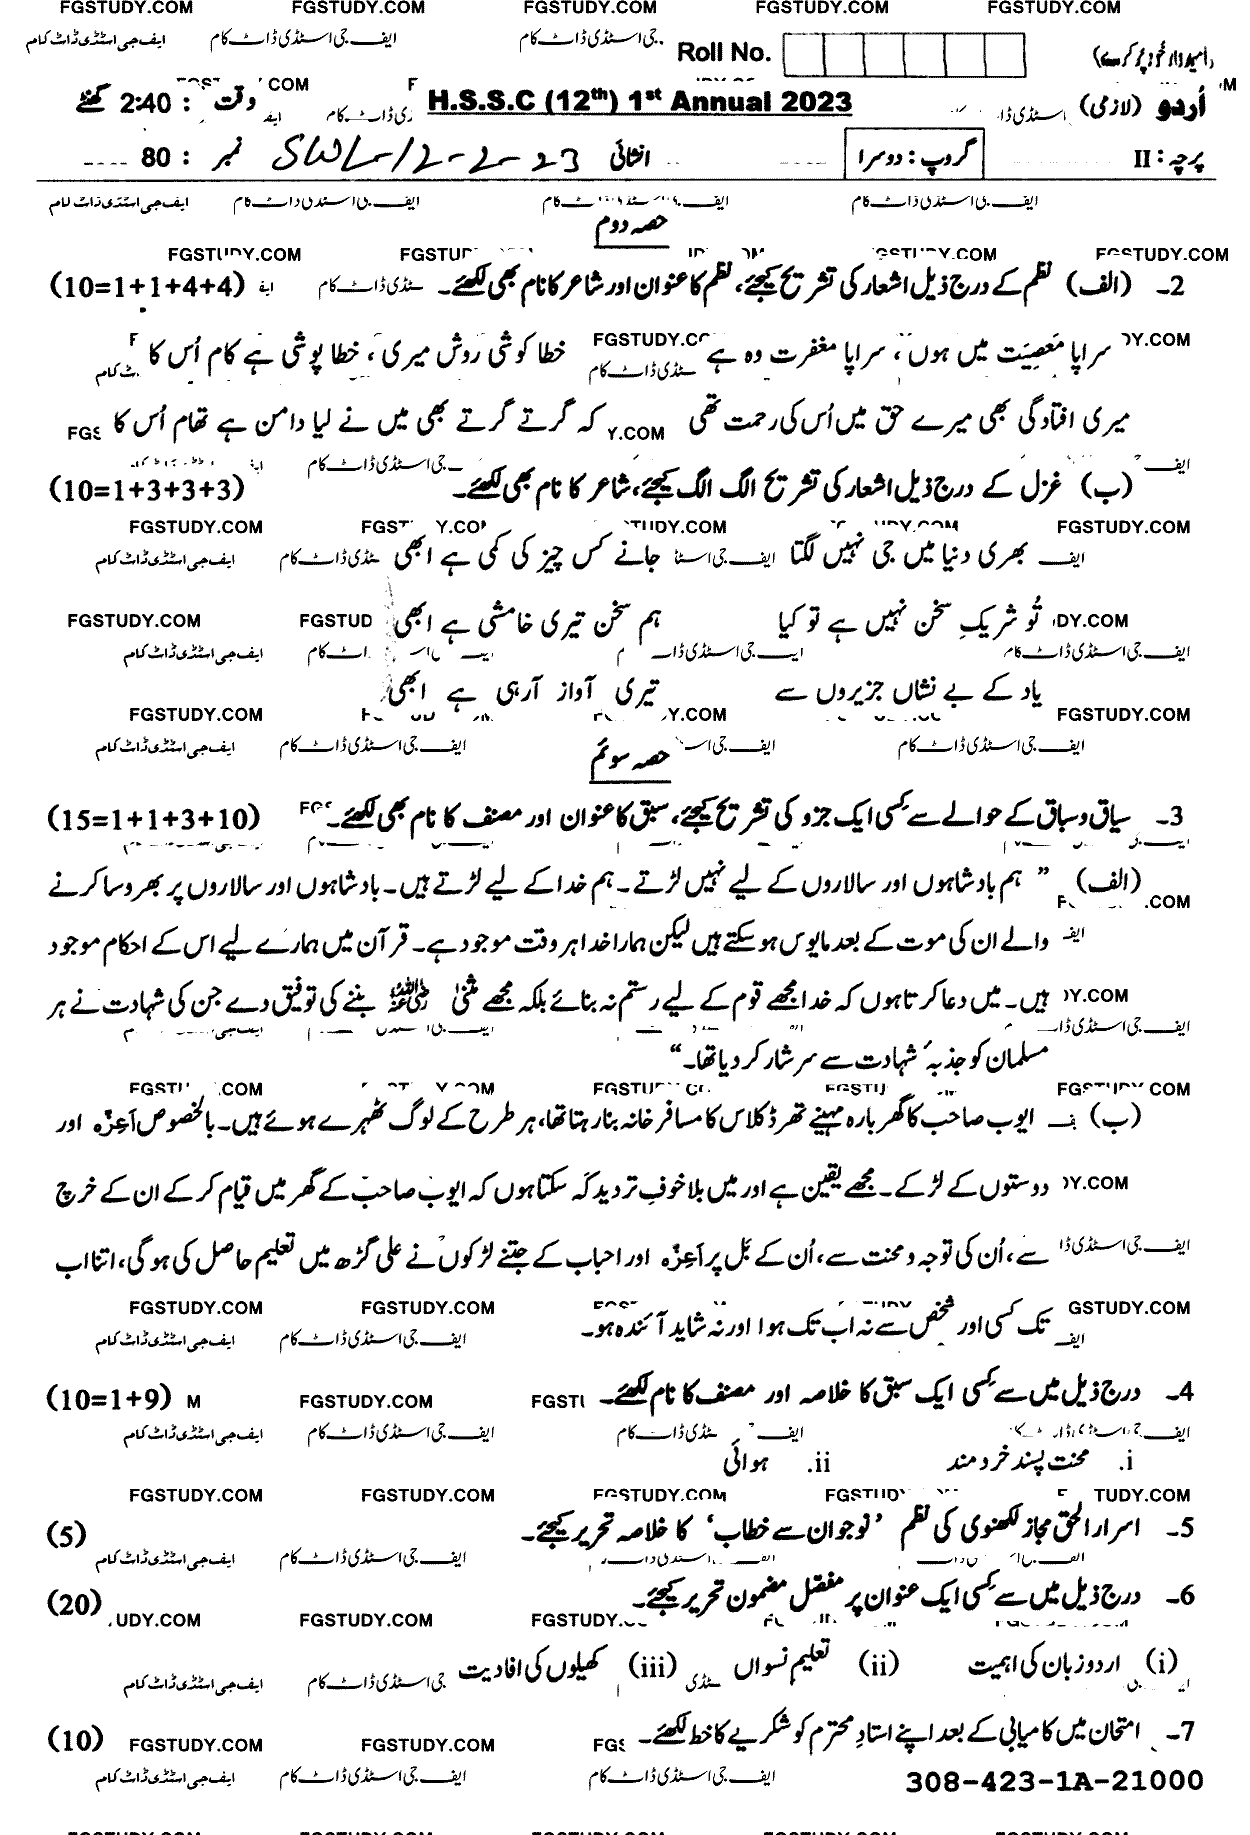 FGSTUDY.COM FGSTUDY.COM FGSTUDY.COM FGSTUDY.COM FGSTUDY.COM
(امیدوار خود پُر کرے) Roll No. ایف جی اسٹڈی ڈاٹ کام ایف جی اسٹڈی ڈاٹ کام
اُردو (لازمی) H.S.S.C (12th) 1st Annual 2023 وقت : 2:40 گھنٹے
پرچہ : II گروپ : دوسرا انشائی SWL-12-2-23 نمبر : 80
ایف جی اسٹڈی ڈاٹ کام ایف جی اسٹڈی ڈاٹ کام ایف جی اسٹڈی ڈاٹ کام ایف جی اسٹڈی ڈاٹ کام
حصہ دوم
2۔ (الف) نظم کے درج ذیل اشعار کی تشریح کیجئے، نظم کا عنوان اور شاعر کا نام بھی لکھئے۔ (10=1+1+4+4)
سراپا معصِیَت میں ہوں، سراپا مغفرت وہ ہے خطا کوشی روش میری، خطا پوشی ہے کام اُس کا
میری افتادگی بھی میرے حق میں اُس کی رحمت تھی کہ گرتے گرتے بھی میں نے لیا دامن ہے تھام اُس کا
(ب) غزل کے درج ذیل اشعار کی تشریح الگ الگ کیجئے، شاعر کا نام بھی لکھئے۔ (10=1+3+3+3)
FGSTUDY.COM FGSTUDY.COM
بھری دنیا میں جی نہیں لگتا جانے کس چیز کی کمی ہے ابھی
تُو شریکِ سخن نہیں ہے تو کیا ہم سخن تیری خامشی ہے ابھی
یاد کے بے نشاں جزیروں سے تیری آواز آرہی ہے ابھی
FGSTUDY.COM FGSTUDY.COM
حصہ سوئم
3۔ سیاق و سباق کے حوالے سے کسی ایک جزو کی تشریح کیجئے، سبق کا عنوان اور مصنف کا نام بھی لکھئے۔ (15=1+1+3+10)
(الف) " ہم بادشاہوں اور سالاروں کے لیے نہیں لڑتے۔ ہم خدا کے لیے لڑتے ہیں۔ بادشاہوں اور سالاروں پر بھروسا کرنے
والے ان کی موت کے بعد مایوس ہو سکتے ہیں لیکن ہمارا خدا ہر وقت موجود ہے۔ قرآن میں ہمارے لیے اس کے احکام موجود
ہیں۔ میں دعا کرتا ہوں کہ خدا مجھے قوم کے لیے رستم نہ بنائے بلکہ مجھے مثنیٰ رضی اللہ عنہ بننے کی توفیق دے جن کی شہادت نے ہر
مسلمان کو جذبۂ شہادت سے سرشار کر دیا تھا۔"
(ب) ایوب صاحب کا گھر بارہ مہینے تھرڈ کلاس کا مسافر خانہ بنا رہتا تھا، ہر طرح کے لوگ ٹھہرے ہوئے ہیں۔ بالخصوص اَعِزّہ اور
دوستوں کے لڑکے۔ مجھے یقین ہے اور میں بلا خوفِ تردید کہہ سکتا ہوں کہ ایوب صاحب کے گھر میں قیام کر کے ان کے خرچ
سے، اُن کی توجہ و محنت سے، اُن کے بَل پر اَعِزّہ اور احباب کے جتنے لڑکوں نے علی گڑھ میں تعلیم حاصل کی ہوگی، اتنا اب
تک کسی اور شخص سے نہ اب تک ہوا اور نہ شاید آئندہ ہو۔
4۔ درج ذیل میں سے کسی ایک سبق کا خلاصہ اور مصنف کا نام لکھئے۔ (10=1+9)
i. محنت پسند خردمند ii. ہوائی
FGSTUDY.COM FGSTUDY.COM FGSTUDY.COM
5۔ اسرار الحق مجاز لکھنوی کی نظم 'نوجوان سے خطاب' کا خلاصہ تحریر کیجئے۔ (5)
6۔ درج ذیل میں سے کسی ایک عنوان پر مفصل مضمون تحریر کیجئے۔ (20)
(i) اردو زبان کی اہمیت (ii) تعلیمِ نسواں (iii) کھیلوں کی افادیت
7۔ امتحان میں کامیابی کے بعد اپنے استادِ محترم کو شکریے کا خط لکھئے۔ (10)
ایف جی اسٹڈی ڈاٹ کام ایف جی اسٹڈی ڈاٹ کام ایف جی اسٹڈی ڈاٹ کام 308-423-1A-21000